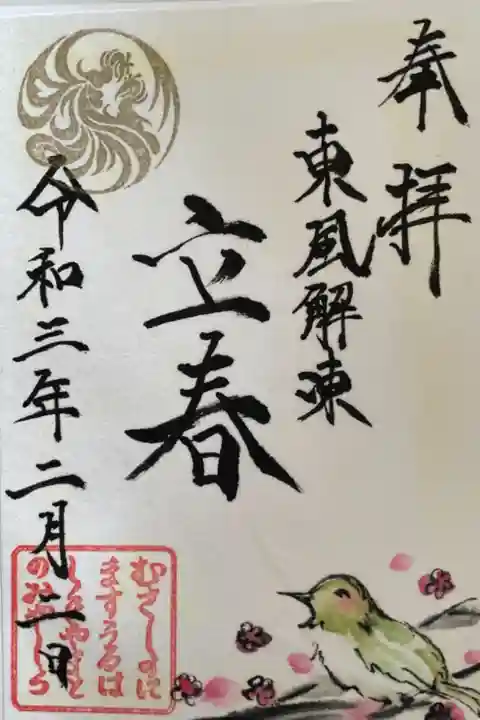 奉拝
東風解凍
立春
令和三年二月二日
むさしのに
ますうるは
しきやまと
のみやしろ